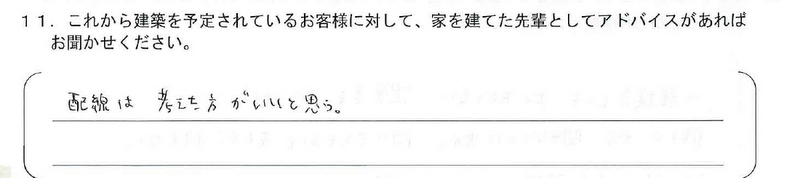 １１．これから建築を予定されているお客様に対して、家を建てた先輩としてアドバイスがあれば
お聞かせください。
配線は 考えた方がいいと思う。